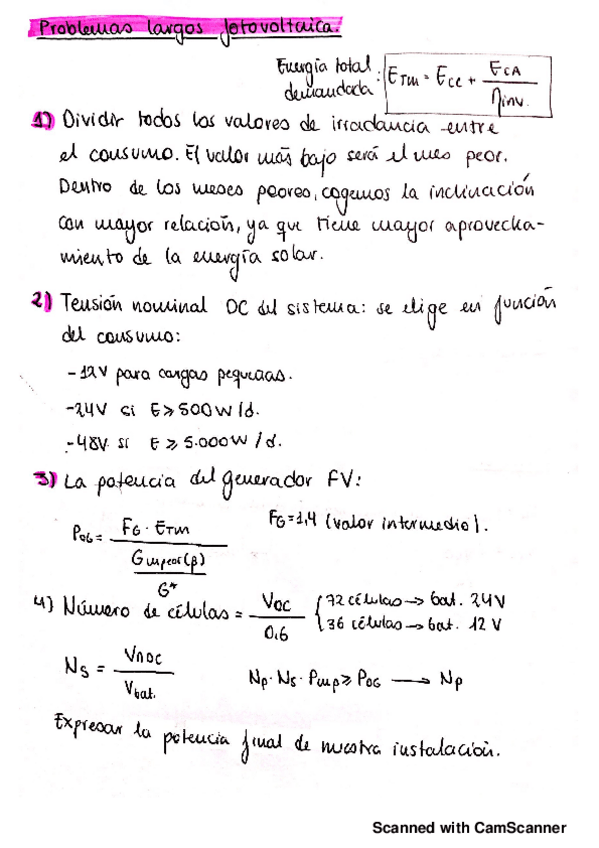 Problemas largos fotovoltaica.
Energía total demandada: E_TM = E_CC + E_CA / η inv.
1) Dividir todos los valores de irradancia entre
el consumo. El valor más bajo será el mes peor.
Dentro de los meses peores, cogemos la inclinación
con mayor relación, ya que tiene mayor aprovecha-
miento de la energía solar.
2) Tensión nominal DC del sistema: se elige en función
del consumo:
-12V para cargas pequeñas.
-24V si E ≥ 500W/d.
-48V si E ≥ 5.000W/d.
3) La potencia del generador FV:
P_OG = F_G · E_TM / (G_mpeor(β) / G*)
F_G = 1,4 (valor intermedio).
4) Número de células = V_OC / 0,6 { 72 células → bat. 24V
36 células → bat. 12V
N_S = V_NDC / V_bat.
N_P · N_S · P_mp ≥ P_OG → N_P
Expresar la potencia final de nuestra instalación.
Scanned with CamScanner